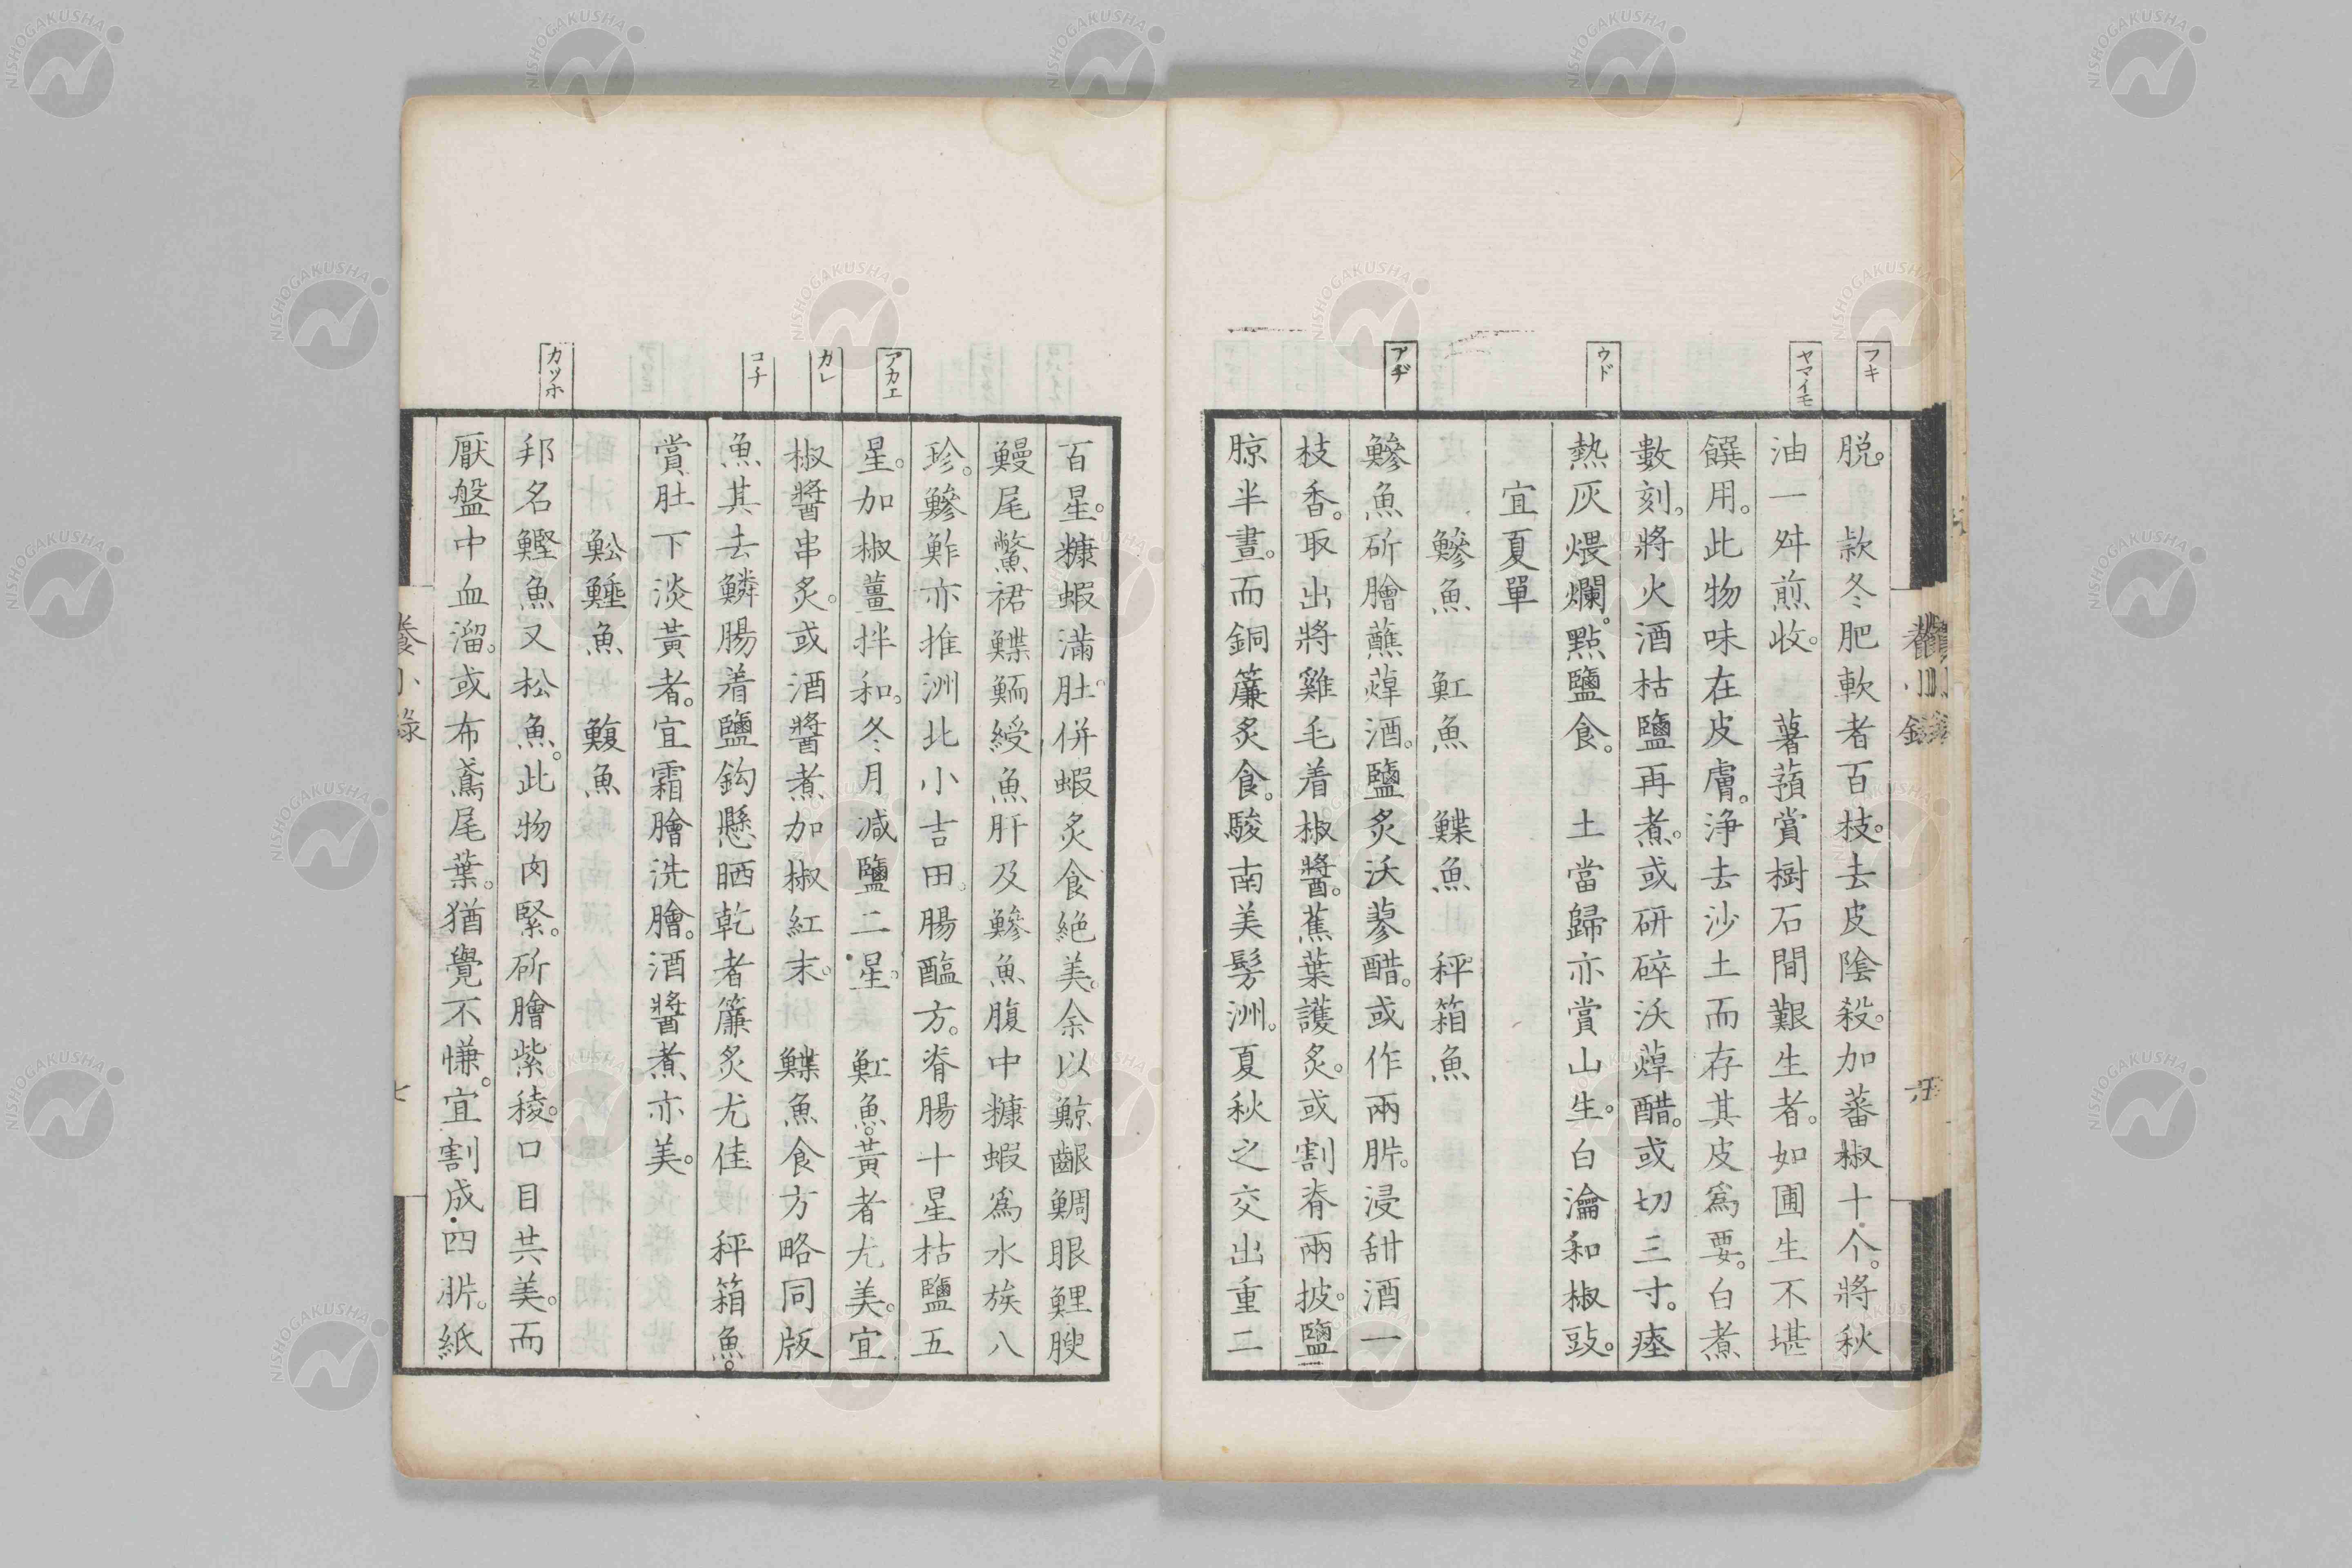 フキ
ヤマイモ
ウド
アヂ
脱。　款冬肥軟者百枝。去皮陰殺。加蕃椒十个。將秋
油一舛煎收。　薯蕷賞樹石間艱生者。如圃生不堪
饌用。此物味在皮膚。浄去沙土而存其皮爲要。白煮
數刻。將火酒枯鹽再煮。或研碎沃蕇醋。或切三寸。瘞
熱灰煨爛。點鹽食。　土當歸亦賞山生。白瀹和椒豉。
宜夏單
鰺魚　魟魚　鰈魚　秤箱魚
鰺魚斫膾蘸蕇酒。鹽炙沃蓼醋。或作兩胏。浸甜酒一
枝香。取出將雞毛着椒醬。蕉葉護炙。或割脊兩披。鹽
晾半晝。而銅簾炙食。駿南美髣洲。夏秋之交出重二
アカエ
カレ
コチ
カツホ
百星。糠蝦滿肚。併蝦炙食絶美。余以鯨齦鯛眼鯉膄
鰻尾鱉裙鰈䱎綬魚肝及鰺魚腹中糠蝦爲水族八
珍。鰺鮓亦推洲北小吉田。腸醢方。脊腸十星枯鹽五
星。加椒薑拌和。冬月減鹽二星。　魟魚。黃者尤美。宜
椒醬串炙。或酒醬煮加椒紅末。　鰈魚食方略同版
魚其去鱗腸着鹽鈎懸晒乾者簾炙尤佳　秤箱魚。
賞肚下淡黃者。宜霜膾洗膾。酒醬煮亦美。
鮏魚　鰒魚
邦名鰹魚又松魚。此物肉緊。斫膾紫稜。口目共美。而
厭盤中血溜。或布鳶尾葉。猶覺不慊。宜割成四胏。紙
養小錄
七
NISHOGAKUSHA